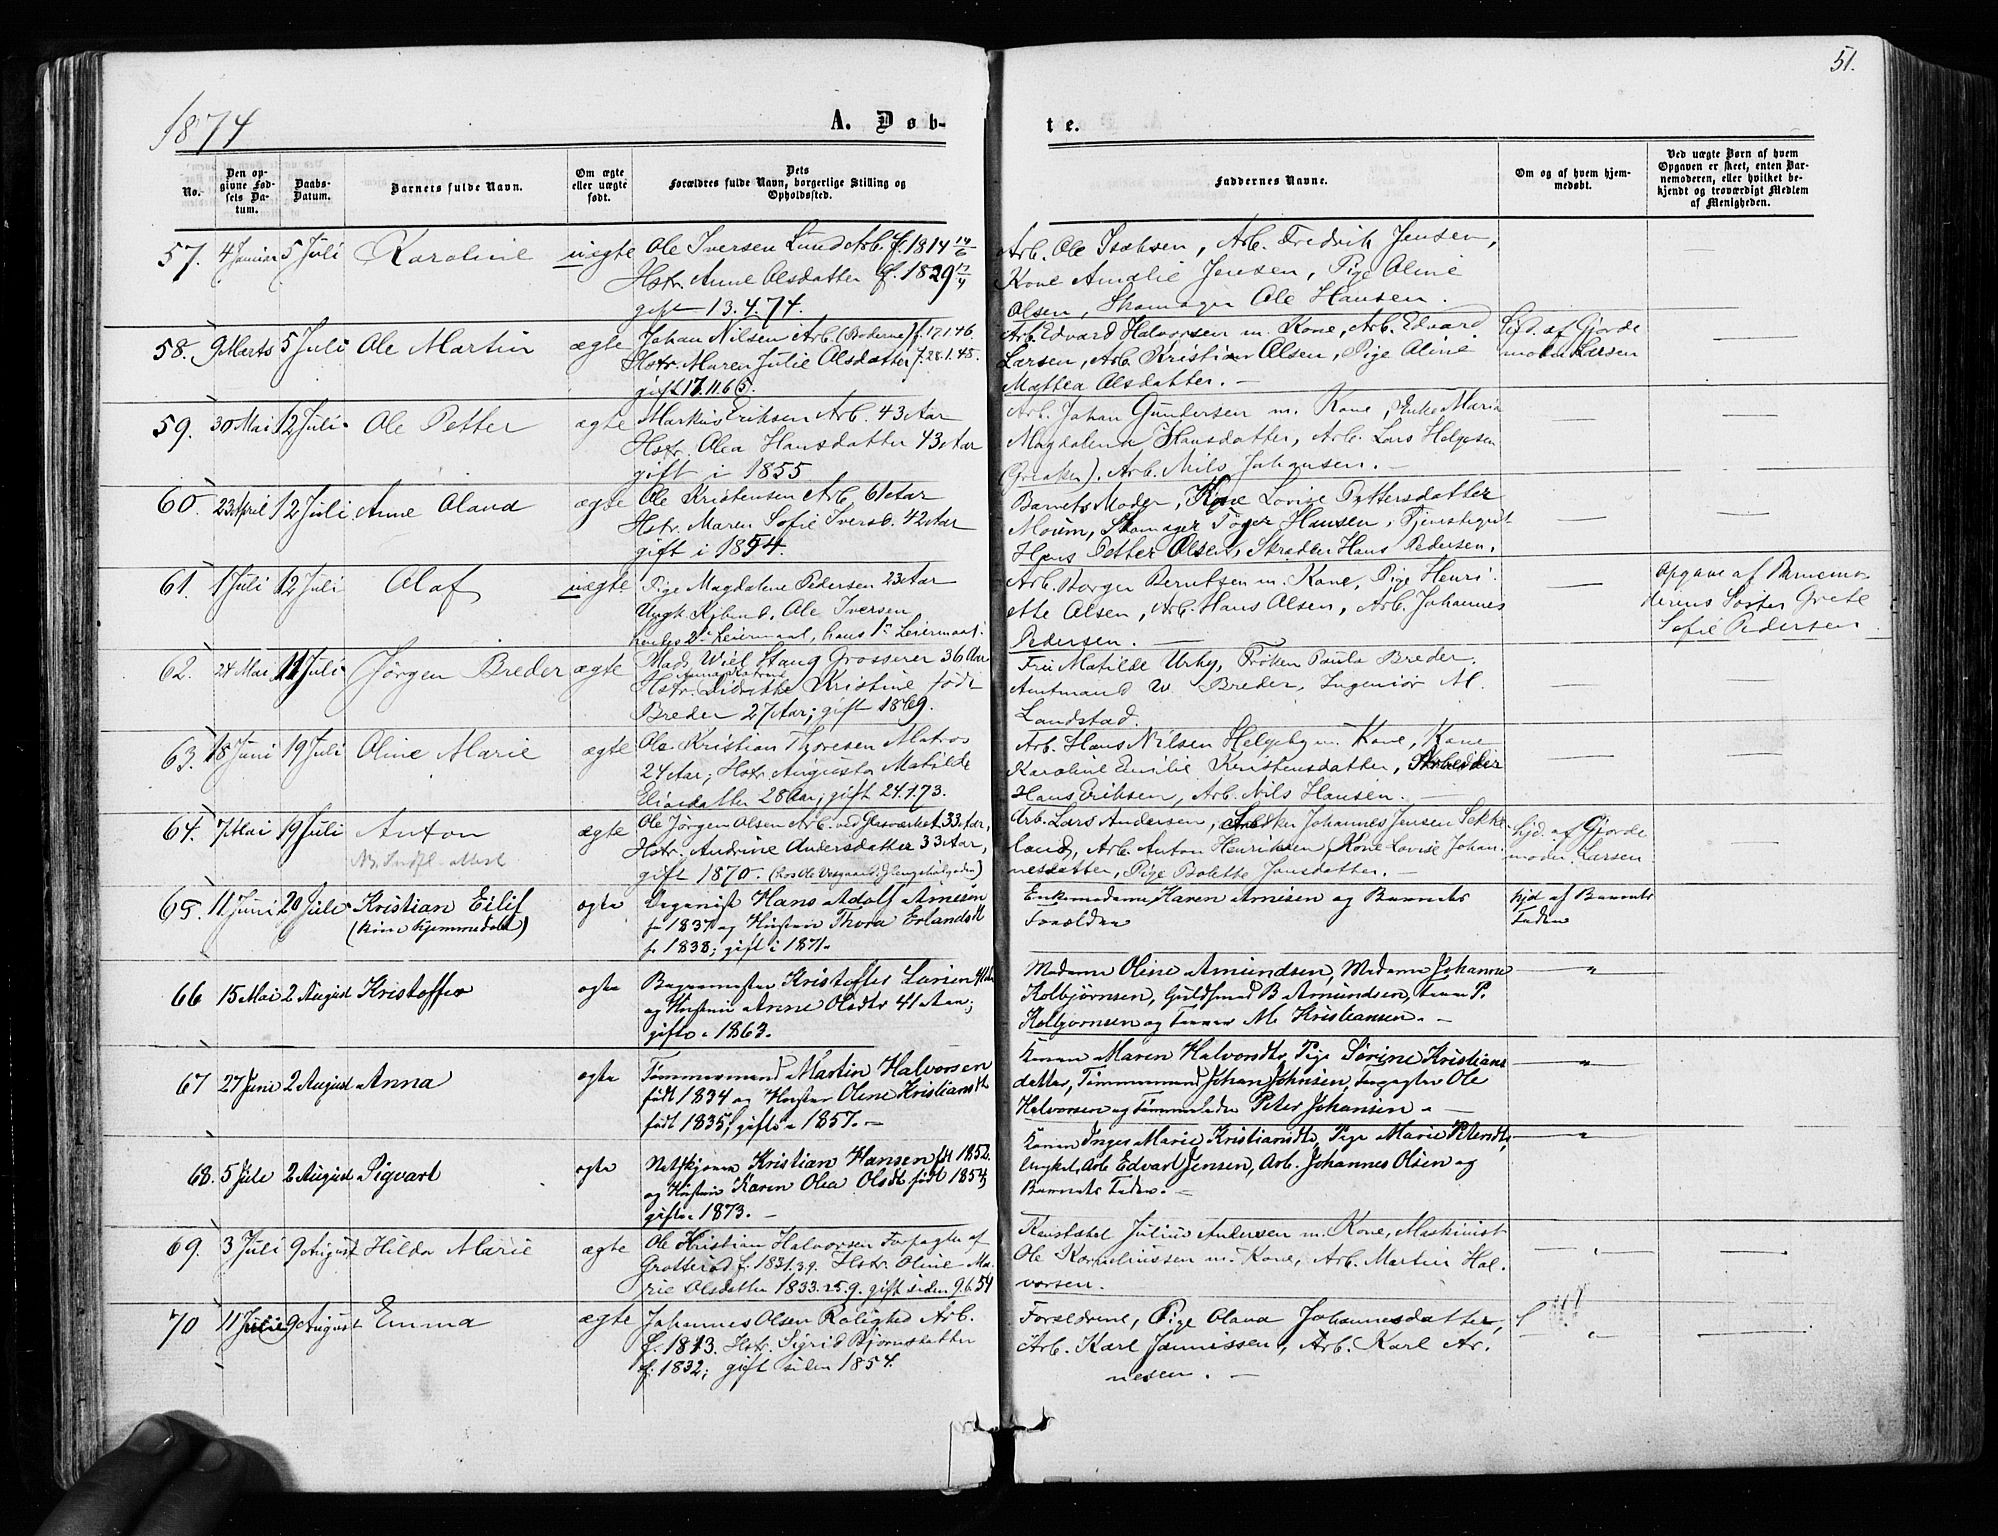 51.
1874
A. Døb-
te.
No.
Den op-
givne Fød-
sels Da-
tum.
Daabs-
Datum.
Barnets fulde Navn.
Om ægte
eller uægte
født.
Dets
Forældres fulde Navn, borgerlige Stilling og
Opholdssted.
Faddernes Navne.
Om og af hvem hjem-
medøbt.
Ved uægte Børn af hvem
Opgaven er skeet, enten Bar-
nemoderen, eller hvilket be-
kjendt og troværdigt Medlem
af Menigheden.
57. 4 Januar 5 Juli Karoline uægte Ole Iversen Lund Arb. f. 1814 14/6
Hstr. Anne Olsdatter f. 1829
gift 13.4.74.
Arb. Ole Isaksen, Arb. Fredrik Jensen,
Kone Amalie Jensen, Pige Oline
Olsen, Skomager Ole Hansen.
58. 9 Marts 5 Juli Ole Martin ægte Johan Nilsen Arb. (Boderne) f. 17.1.46.
Hstr. Maren Julie Olsdatter f. 28.1.45.
gift 17.11.65.
Arb. Edvard Halvorsen m. Kone, Arb. Edvard
Larsen, Arb. Kristian Olsen, Pige Oline
Mathea Olsdatter. —
Hjd. af Gjorde
moder Larsen
59. 30 Mai 12 Juli Ole Petter ægte Markus Eriksen Arb. 43 Aar
Hstr. Olea Hansdatter 43 Aar
gift i 1855
Arb. Johan Gundersen m. Kone, Enke Maria
Magdalena Hansdatter, Arb. Lars Helgesen
(Greaker), Arb. Nils Johansen. —
60. 23 April 12 Juli Anne Olava ægte Ole Kristensen Arb. 61 Aar
Hstr. Maren Sofie Iversd. 42 Aar
gift i 1854.
Barnets Moder, Kone Lovise Pettersdatter
Moum, Skomager Tøger Hansen, Tjenstegut
Hans Petter Olsen, Skrædder Hans Pedersen.
61. 1 Juli 12 Juli Olaf uægte Pige Magdalene Pedersen 23 Aar
Ungk. Ole Iversen
hendes 2det Leiermaal, hans 1ste Leiermaal.
Arb. Borger Berntsen m. Kone, Pige Henri-
ette Olsen, Arb. Hans Olsen, Arb. Johannes
Pedersen. —
Opgave af Barnemo-
derens Søster Grete
Sofie Pedersen
62. 24 Mai 11 Juli Jørgen Breder ægte Mads Wiel Stang Grosserer 36 Aar
Anna Katrine
Hstr. Didrikke Kristine født
Breder 27 Aar; gift 1869.
Fru Matilde Urby, Frøken Paula Breder.
Amtmand W. Breder, Ingeniør M.
Landstad.
63. 18 Juni 19 Juli Oline Marie ægte Ole Kristian Thoresen Matros
24 Aar; Hstr. Augusta Matilde
Eliasdatter 28 Aar; gift 24.1.73.
Arb. Hans Nilsen Helgeby m. Kone, Kone
Karoline Emilie Kristensdatter, Arbeider
Hans Eriksen, Arb. Nils Hansen. —
64. 7 Mai 19 Juli Anton ægte Ole Jørgen Olsen Arb. ved Glasværket 33 Aar,
Hstr. Andrine Andersdatter 33 Aar,
gift 1870.
Arb. Lars Andersen, Johannes Jensen Sekke-
land, Arb. Anton Henriksen, Kone Lovise Johan-
nesdatter, Pige Bolette Jensdatter. —
Hjd. af Gjorde
moder Larsen
65. 11 Juni 20 Juli Kristian Eilif
ægte Organist Hans Adolf Arnisen
f. 1837 og Hustru Thora Erlandsdt
f. 1838; gift i 1871.
Enkemadame Karen Arnisen og Barnets
Forældre
Hjd af Barnets
Fader
66 15 Mai 2 August Kristoffer ægte Bagermester Kristoffer Larsen 41 Aar
og Hustru Anne Olsdtr 41 Aar;
gifte 1863.
Madame Oline Amundsen, Madame Johanne
Kolbjørnsen, Guldsmed B Amundsen, P.
Kolbjørnsen og M. Kristiansen. —
67 27 Juni 2 August Anna ægte Tømmermand Martin Halvorsen
født 1834 og Hustru Oline Kristiansdt
født 1835; gifte 1857. —
Konen Maren Halvorsdtr, Pige Sørine Kristians
datter, Tømmermand Johan Johnsen, Forpagter Ole
Halvorsen og Peter Johansen. —
68. 5 Juli 2 August Sigvart ægte Kristian Hansen fdt 1852.
og Hustru Karen Olea Olsdt født 1854;
gifte 1873. —
Konen Inger Marie Kristiansdtr, Pige Marie
Ungkarl, Arb Edvart Jensen, Arb. Johannes Olsen og
Barnets Fader. —
69. 3 Juli 9 August Hilda Marie ægte Ole Kristian Halvorsen Forpagter af
Grotterød f. 1831.3.9. Hstr. Oline Ma-
rie Olsdatter 1833.25.9. gift siden 9.6.54
Julius Andersen m. Kone, Maskinist
Ole Kornelinssen m. Kone, Arb. Martin Hal-
vorsen.
70 11 Juli 9 August Emma ægte Johannes Olsen Rolighed Arb.
f. 1813. Hstr. Sigrid Bjørnsdatter
f. 1832; gift siden 1854.
Forældrene, Pige Olava Johannesdatter,
Arb. Karl Jannissen, Arb. Karl Ar-
nesen. —